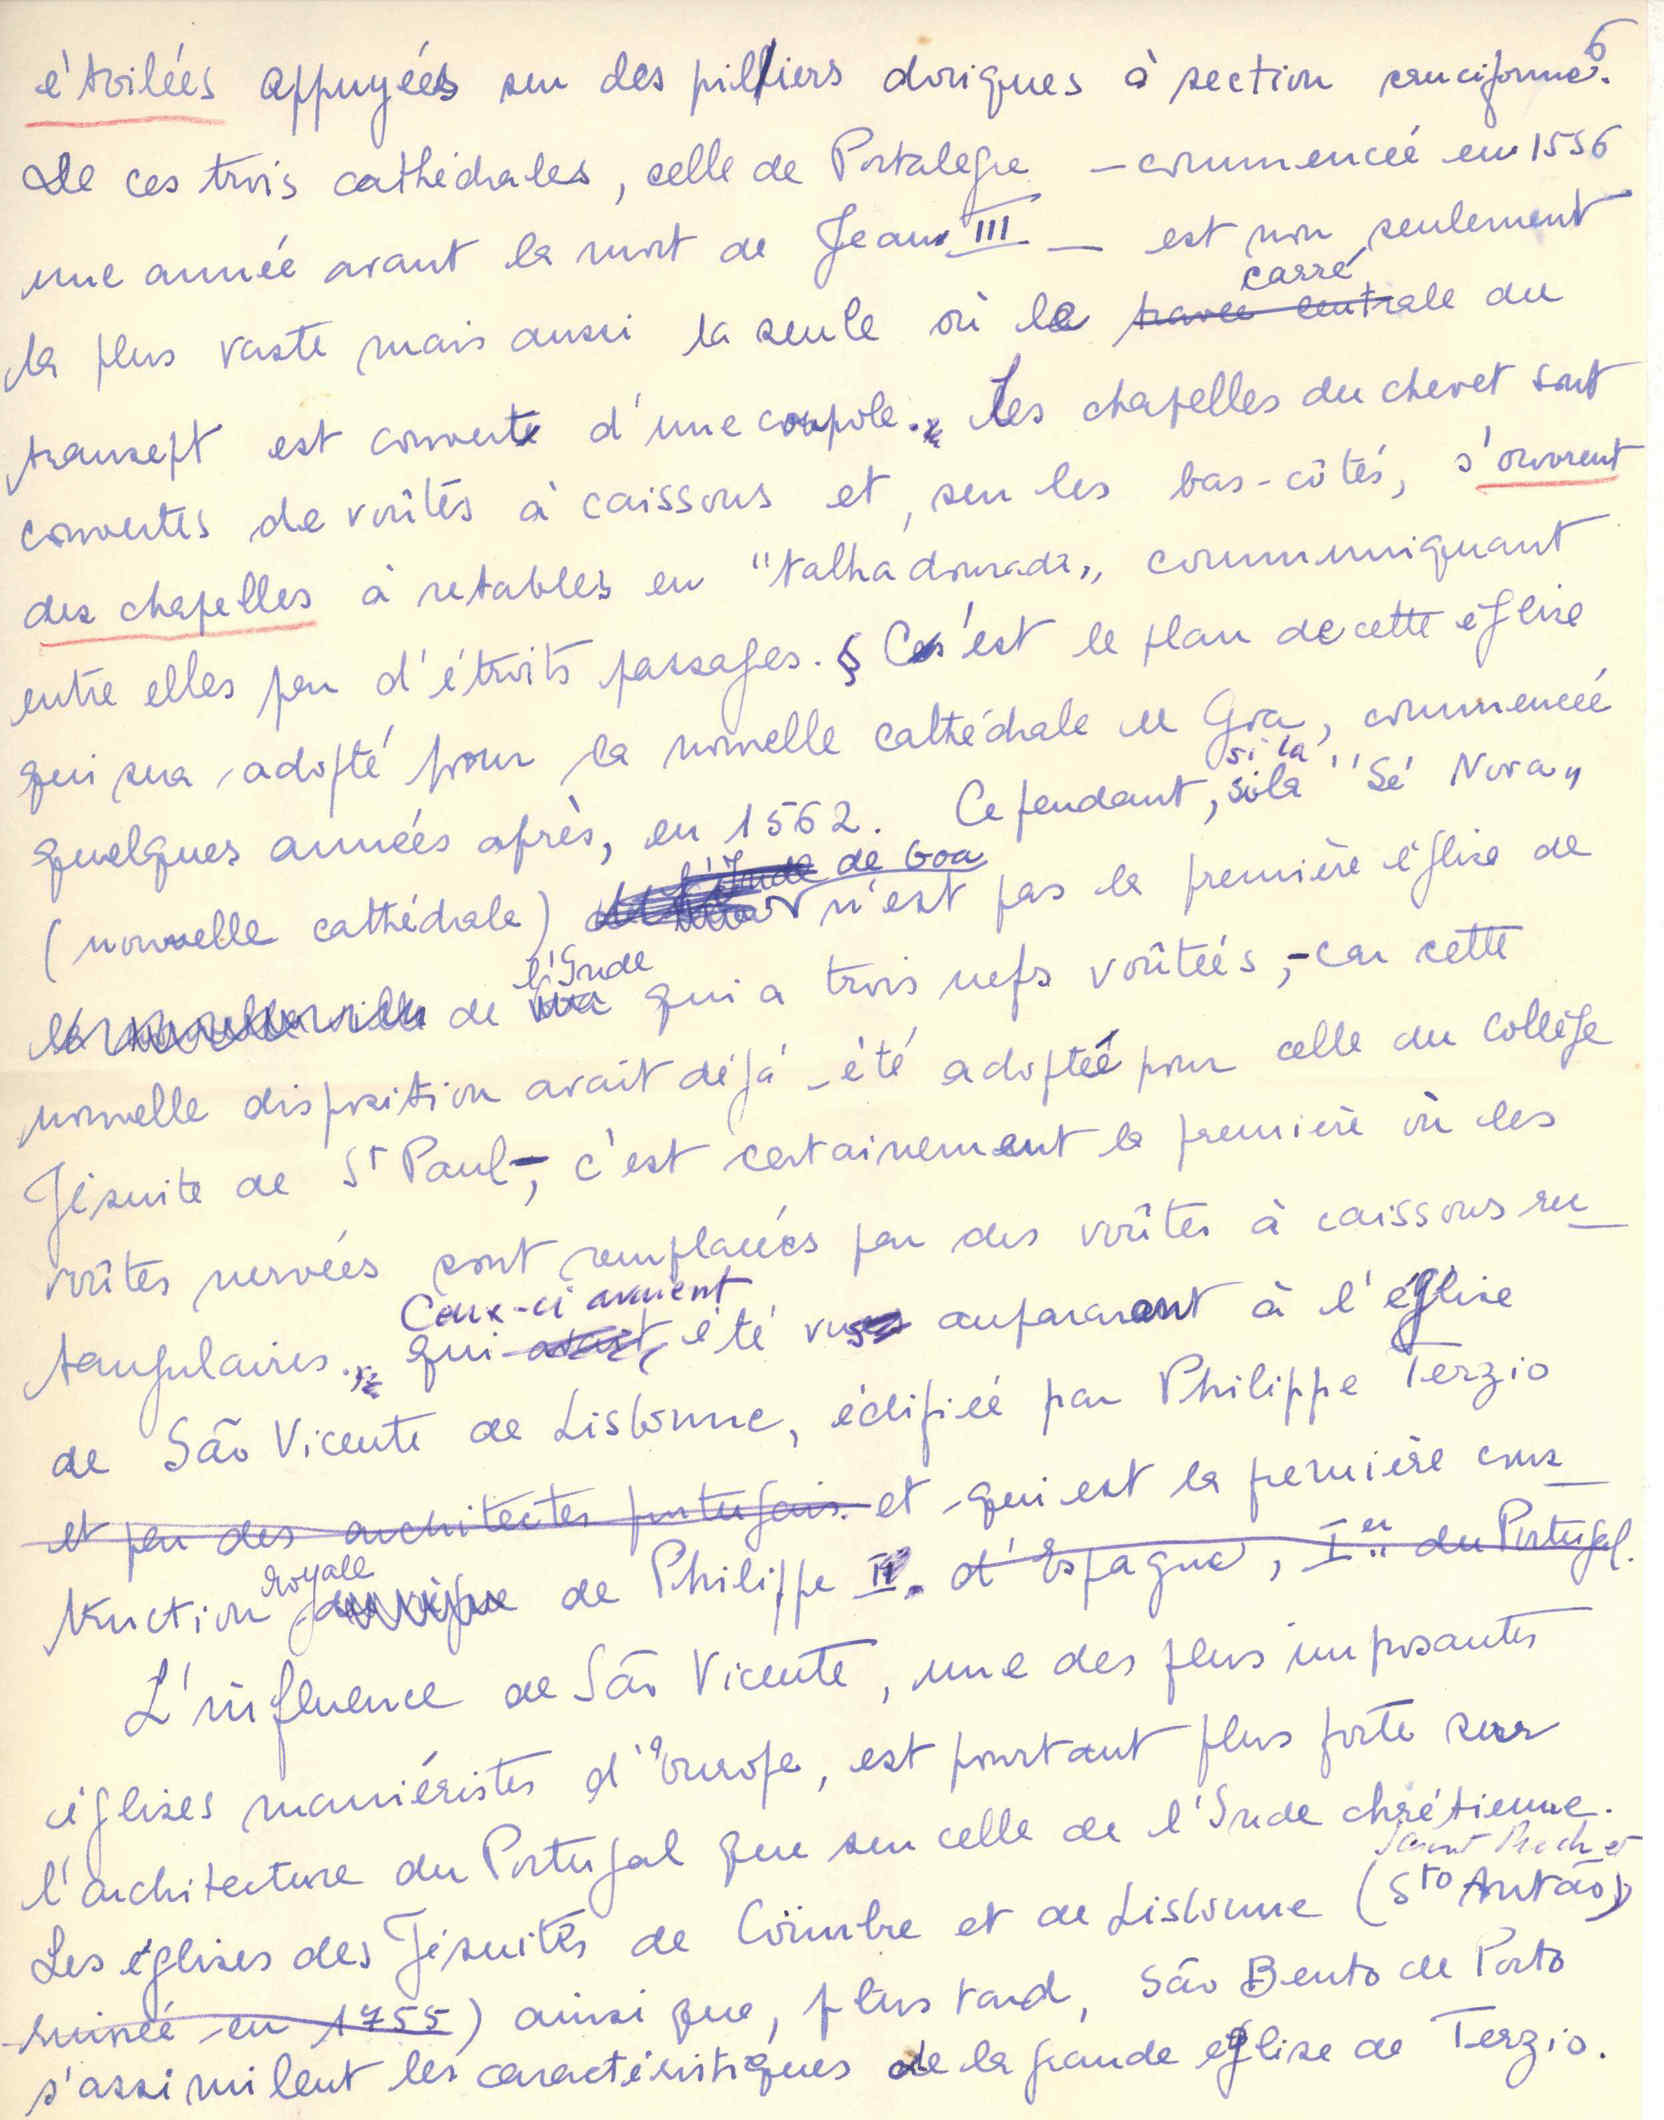 6
étoilées appuyées sur des piliers doriques à section cruciforme.
De ces trois cathédrales, celle de Portalegre – commencée en 1556
une année avant la mort de Jean III – est non seulement
carré
la plus vaste mais aussi la seule où le travée centrale du
transept est couverte d'une coupole. Les chapelles du chevet sont
couvertes de voûtes à caissons et, sur les bas-côtés, s'ouvrent
des chapelles à retables en "talha dourada„ communiquant
entre elles par d'étroits passages. § C'est le plan de cette église
qui sera adopté pour la nouvelle cathédrale de Goa, commencée
si la
quelques années après, en 1562. Cependant, si la "Sé Nova„
l'Inde de Goa
(nouvelle cathédrale) n'est pas la première église de
l'Inde
la nouvelle ville de Goa qui a trois nefs voûtées, – car cette
nouvelle disposition avait déjà été adoptée pour celle du Collège
Jésuite de St Paul –, c'est certainement la première où les
voûtes nervées sont remplacées par des voûtes à caissons rec
Ceux-ci avaient
tangulaires. qui avait été vus auparavant à l'église
de São Vicente de Lisbonne, édifiée par Philippe Terzio
et par des architectes portugais. et qui est la première cons
royale
truction du règne de Philippe II. d'Espagne, Ier du Portugal.
L'influence de São Vicente, une des plus imposantes
églises maniéristes d'Europe, est pourtant plus forte sur
l'architecture du Portugal que sur celle de l'Inde chrétienne.
Saint Roch et
Les églises des Jésuites de Coïmbre et de Lisbonne (Sto Antão)
ruinée en 1755) ainsi que, plus tard, São Bento de Porto
s'assimilent les caractéristiques de la grande église de Terzio.